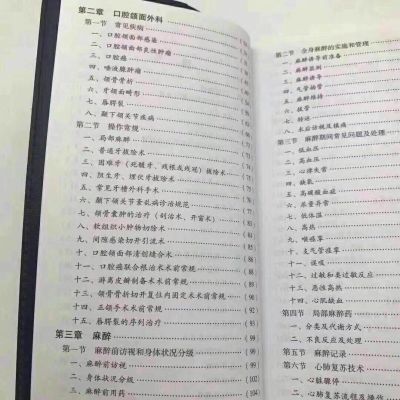 第二章 口腔颌面外科
第一节 常见疾病
一、口腔颌面部感染
二、口腔颌面部良性肿瘤
三、口腔癌
四、唾液腺肿瘤
五、颌骨骨折
六、牙颌面畸形
七、唇腭裂
八、颞下颌关节疾病
第二节 操作常规
一、局部麻醉
二、普通牙拔除术
三、困难牙(死髓牙、残根或残冠)拔除术
四、阻生牙、埋伏牙拔除术
五、常见牙槽外科手术
六、颞下颌关节紊乱病诊治规范
七、颌骨囊肿的治疗(刮治术、开窗术)
八、软组织小肿物切除术
九、间隙感染切开引流术
十、口腔颌面部清创缝合术
十一、口腔癌联合根治术术前常规
十二、游离皮瓣制备术术前常规
十三、颌骨骨折切开复位内固定术术前常规 (92)
十四、正颌手术术前常规 (94)
十五、唇腭裂的序列治疗 (95)
第三章 麻醉 (99)
第一节 麻醉前访视和身体状况分级 (99)
一、麻醉前访视 (99)
二、身体状况分级
三、麻醉前用药 (104)
第二节 全身麻醉的实施和管理
一、麻醉诱导前准备
二、麻醉监测
三、麻醉诱导
四、气管插管
五、麻醉维持
六、拔管
七、转运
八、术后访视及镇痛
第三节 麻醉期间常见问题及处理
一、低血压
二、高血压
三、心律失常
四、缺氧
五、高碳酸血症
六、尿量异常
七、低体温
八、高热
九、喉痉挛
十、支气管痉挛
十一、误吸
十二、过敏和类过敏反应
十三、恶性高热
十四、心肌缺血
第四节 局部麻醉药
一、分类及代谢方式
二、不良反应及处理
第五节 麻醉记录
第六节 心肺复苏技术
一、心脏骤停
二、心肺复苏流程及操作